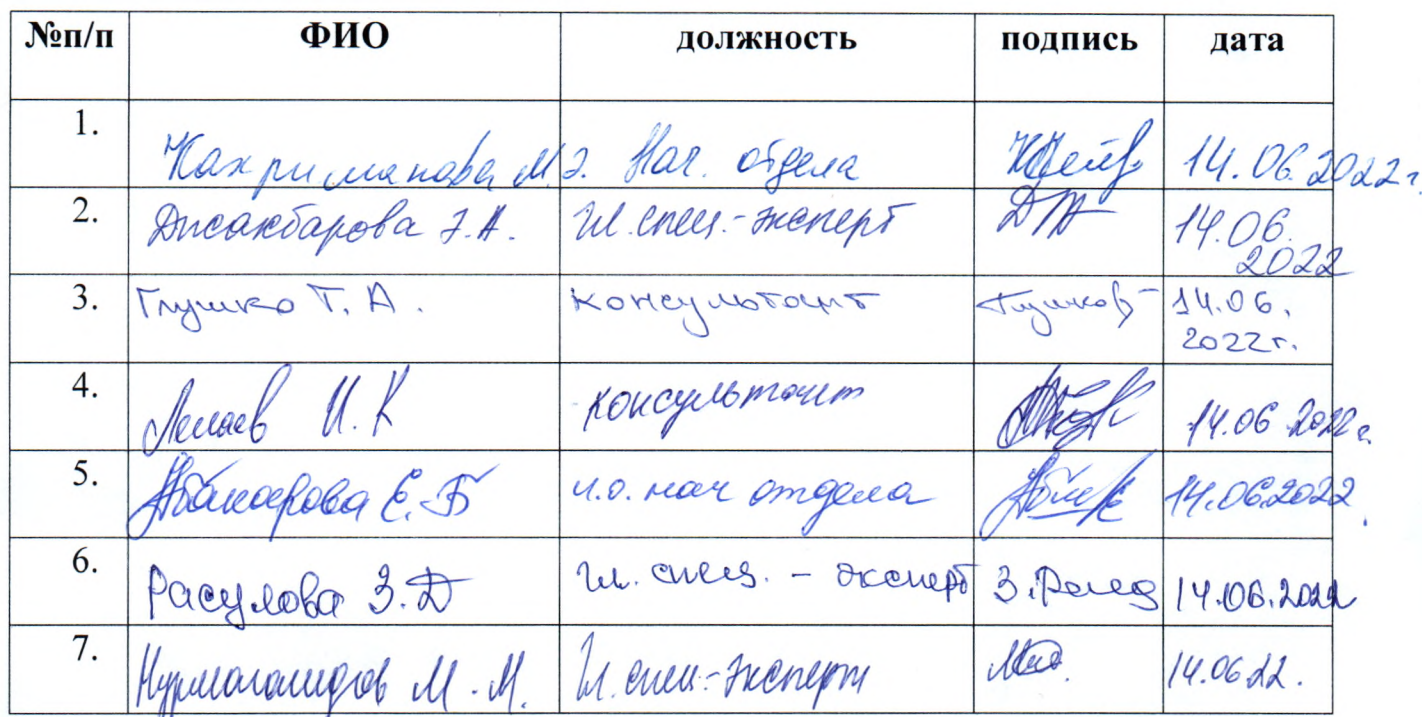 №п/п ФИО должность подпись дата
1. Кахриманова М.Э. Нач. отдела 14.06.2022г.
2. Джакбарова З.А. Гл. спец.-эксперт 14.06.
2022
3. Глушко Т.А. консультант 14.06.
2022г.
4. Лелаев И.К консультант 14.06.2022г.
5. Абакарова Е.Б и.о. нач отдела 14.06.2022.
6. Расулова З.Д гл. спец. - эксперт 14.06.2022
7. Нурмагомедов М.М. Гл. спец-эксперт 14.06.22.